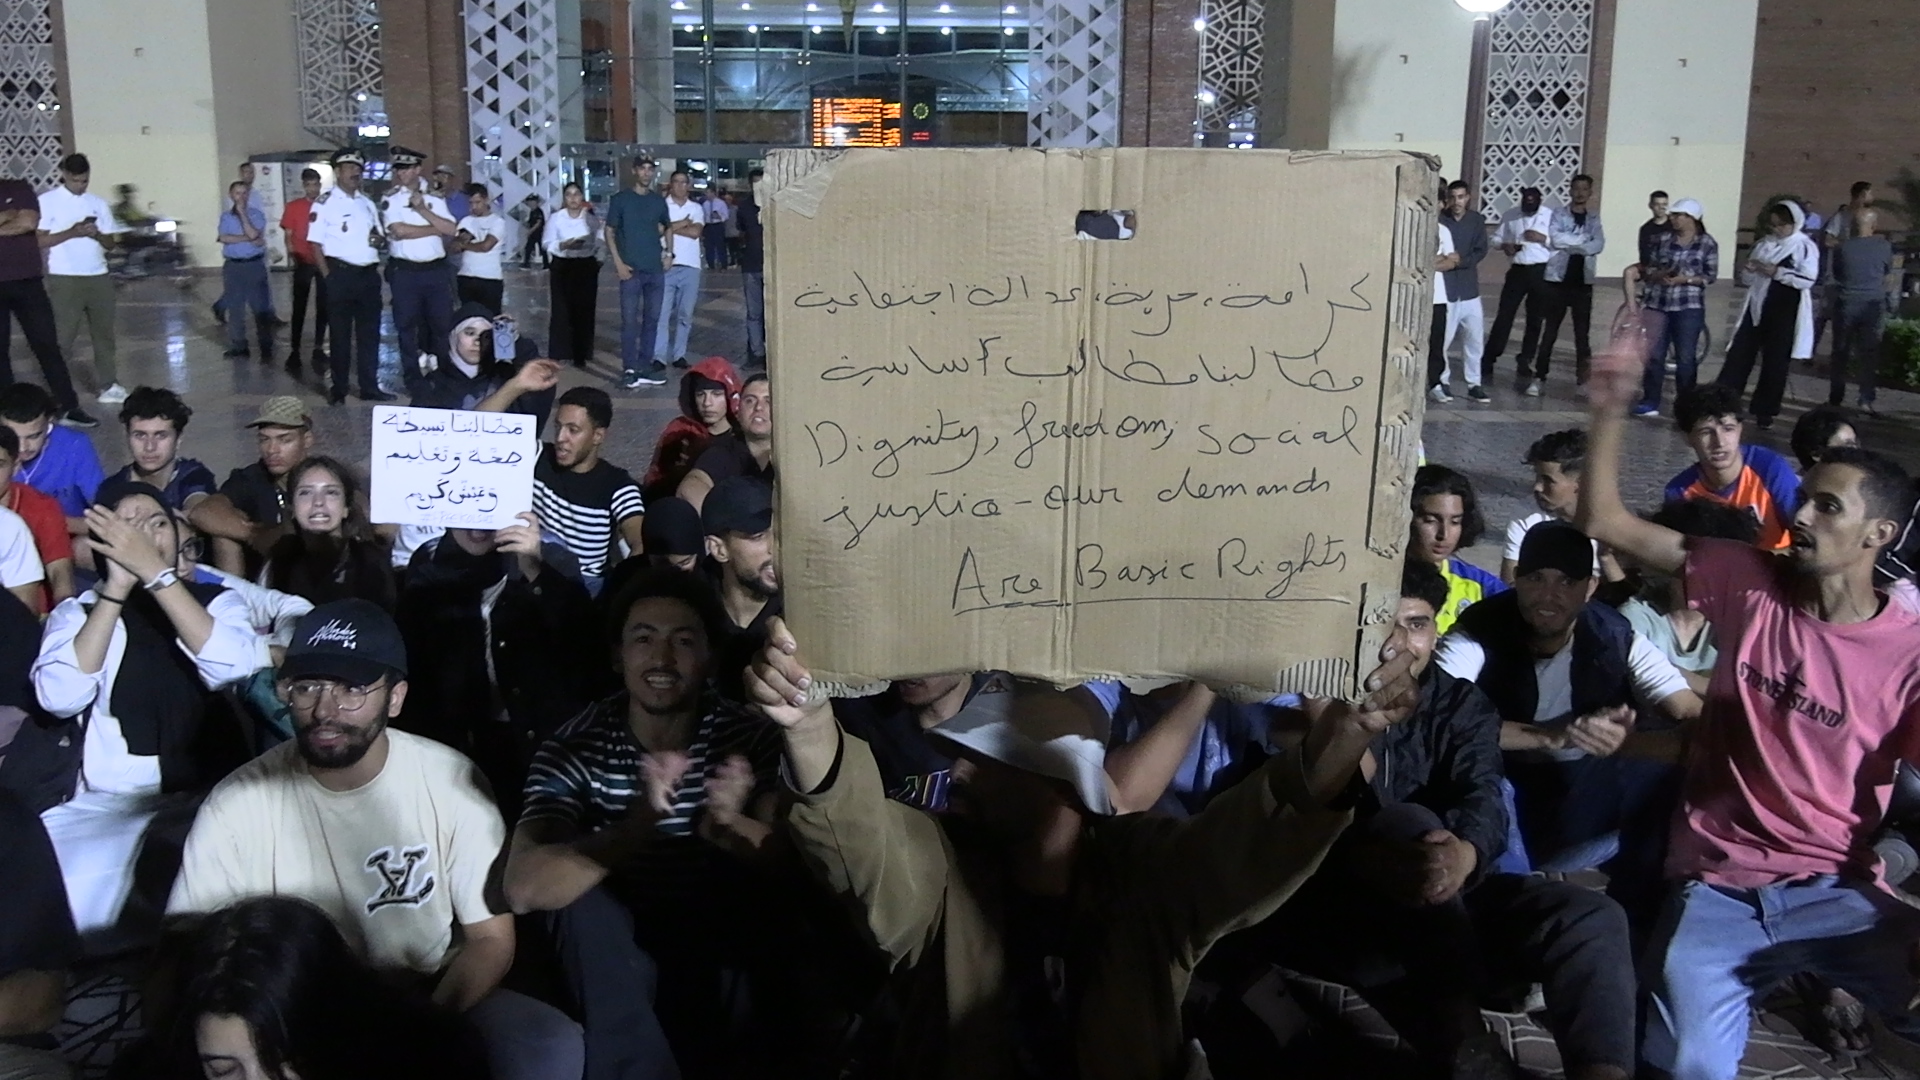 كرامة، حرية، عدالة اجتماعية
مطالبنا مطالب أساسية
Dignity, freedom, social
justice - our demands
Are Basic Rights
مَطَالِبُنَا بَسِيطَة
صِحَّة وَتَعْلِيم
وَعَيْش كَرِيم
STONE ISLAND